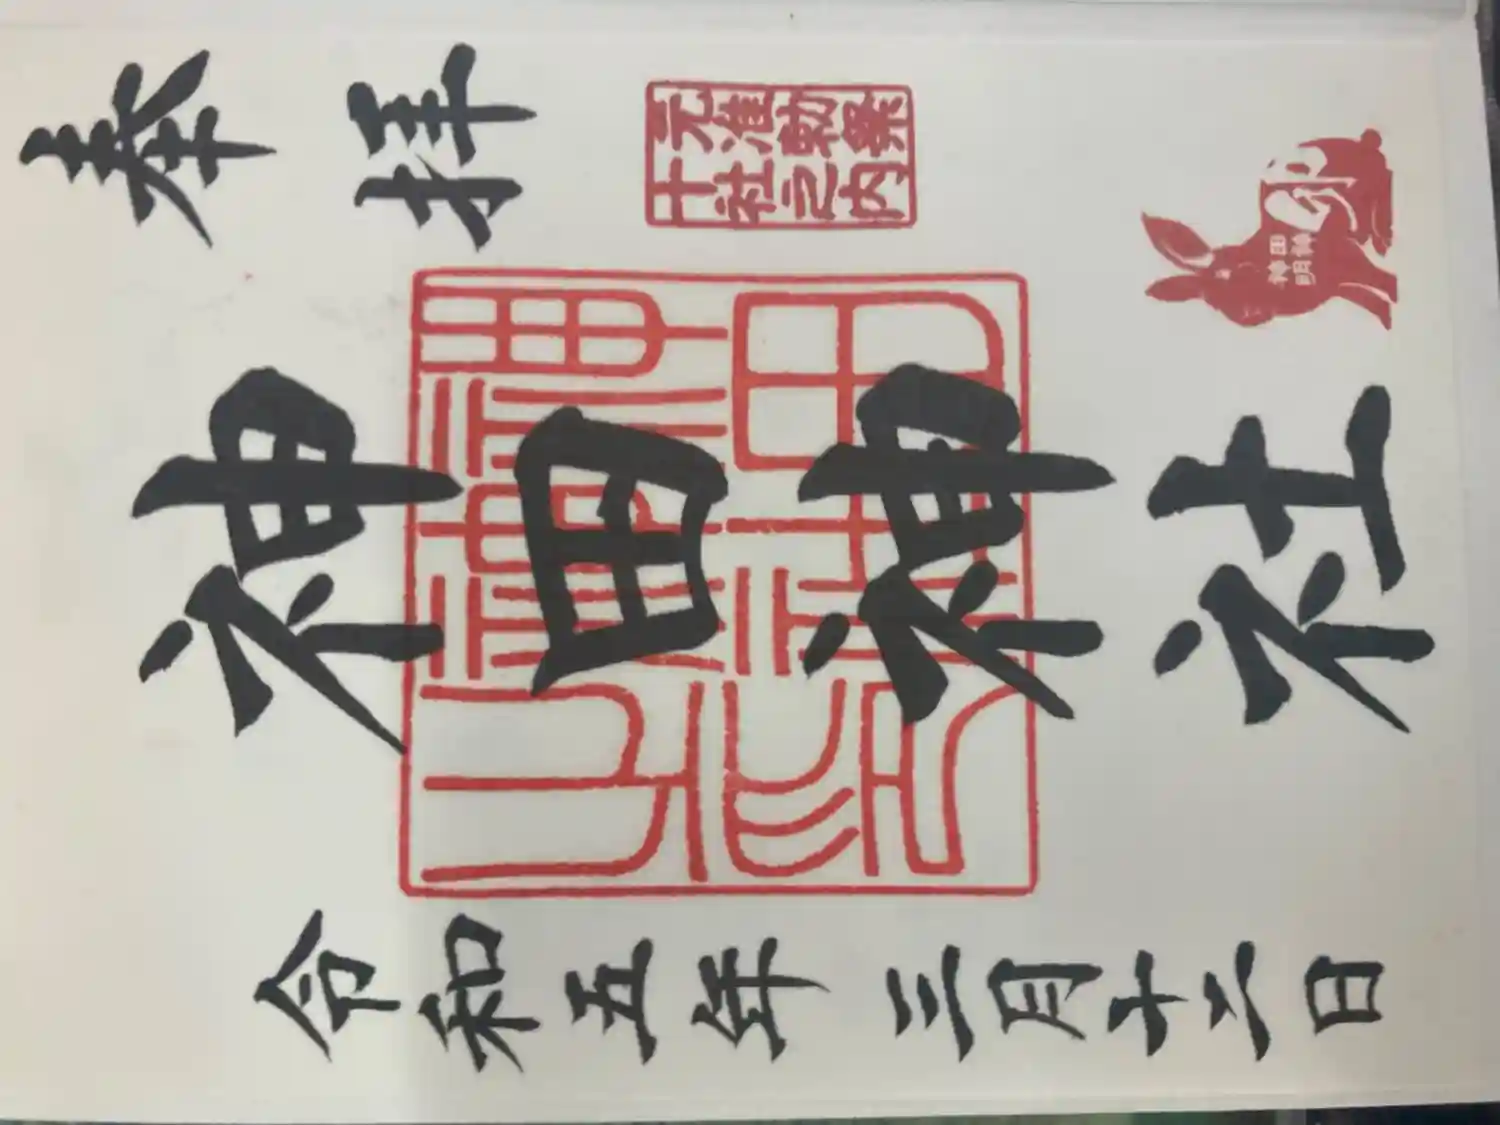 奉拝
元准勅祭
十社之内
神田明神
神田神社
令和五年三月十二日